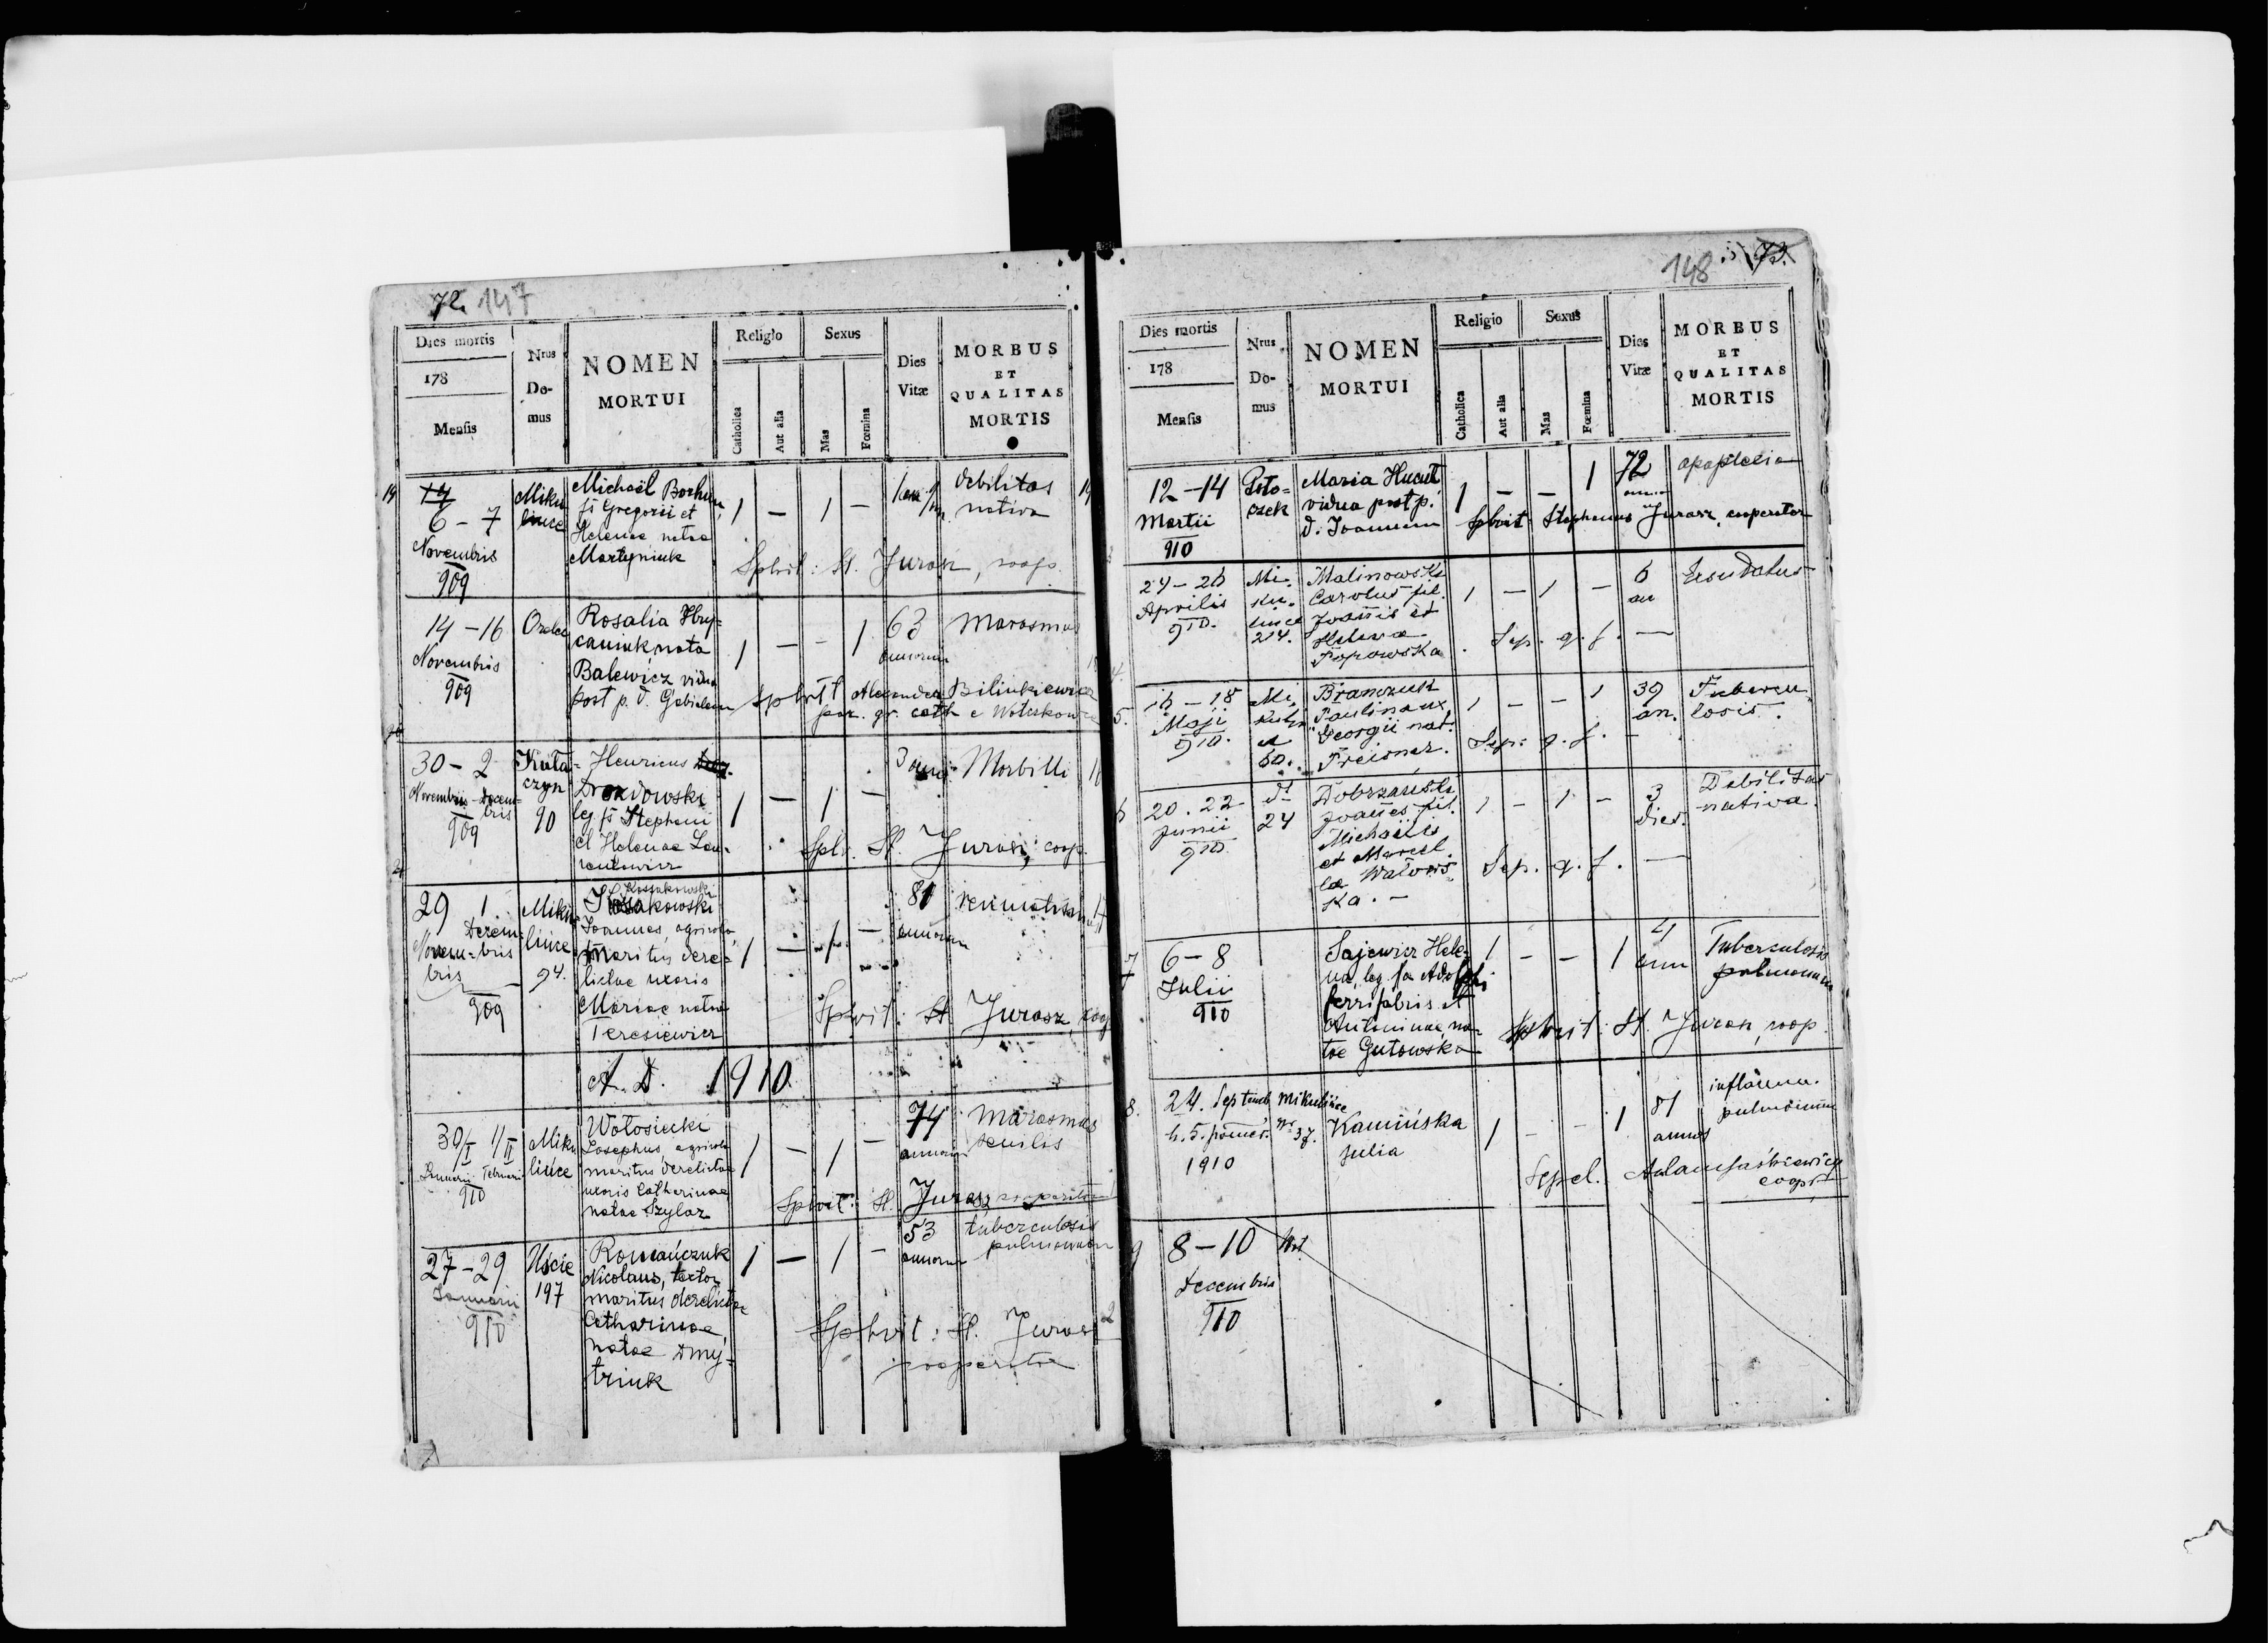 72. 147
Dies mortis
178
Mensis
Nrus
Do-
mus
NOMEN
MORTUI
Religio
Catholica
Aut alia
Sexus
Mas
Fœmina
Dies
Vitæ
MORBUS
ET
QUALITAS
MORTIS
19
6-7
Novembris
909
Miku
lince
Michaël
fs Gregorii et
Helenae natae
Martyniuk
1 - 1 -
debilitas
nativa
Splvit: St. Jurasz, coop.
14-16
Novembris
909
Rosalia Hry=
caniuk nata
Balewicz vidua
post p. d.
1 - - 1
63
annorum
Marasmus
Splvit Alexander Bilinkiewicz
par. gr. cath e
30-2
Novembris-Decem=
bris
909
Kuła=
czyn
90
Henricus
Drozdowski
leg fs Stephani
et Helenae
1 - 1 -
3
Morbilli
Splv. St. Jurasz, coop.
29 1.
Novem= Decem=
bris bris
909
Miku=
lince
94.
Kossakowski
Joannes, agricola
maritus dere=
lictae uxoris
Mariae natae
Teresiewicz
1 - 1 -
81
annorum
Splvit: St Jurasz, coop
A. D. 1910.
30/I 1/II
Januarii Februarii
910
Miku
lince
Wołosiecki
Josephus, agricola
maritus derelictae
uxoris Catharinae
natae Szylar
1 - 1 -
74
annorum
Marasmus
senilis
Splvit: St. Jurasz, cooperator
27-29
Januarii
910
Uście
197
Romańczuk
Nicolaus, textor
maritus derelictae
Catharinae
natae Dmy=
triuk
1 - 1 -
53
annorum
tuberculosis
pulmonum
Splvit: St. Jurasz
cooperator
148 73.
Dies mortis
178
Mensis
Nrus
Do-
mus
NOMEN
MORTUI
Religio
Catholica
Aut alia
Sexus
Mas
Fœmina
Dies
Vitæ
MORBUS
ET
QUALITAS
MORTIS
12-14
Martii
910
Poto=
czek
Maria
vidua post p.
d. Joannem
1 - - 1
72
apoplexia
Splvit Stephanus Jurasz, cooperator
24-26
Aprilis
910.
Mi.
ku.
lince
214.
Malinowski
Carolus fil.
Joañis et
Helena
1 - 1 -
6
an
Sep. q. s. -
5.
16-18
Maji
910.
Mi.
50.
Paulina ux.
Georgii nat.
1 - - 1
39
an.
Tubercu
losis.
Sep. q. s. -
6
20.22
Junii
910
24
Dobrzański
Joañes fil.
Michaelis
et Marcel.
la
1 - 1 -
3
dies.
Debilitas
nativa.
Sep. q. s. -
7
6-8
Julii
910
Sajewicz Hele=
na, leg. fa Adolphi
ferrifabris et
Antoninae, na=
tae Gutowska
1 - - 1
Tuberculosis
pulmonum
Splvit St. Jurasz, coop.
8.
24. Septemb
h. 5.
1910
Mikulince
Nr 37.
Kamińska
Julia
1 - - 1
81
annos
inflamm.
pulmonum
Sepel. Adam Jaśkiewicz
coopr.
9
8-10
Decembris
910